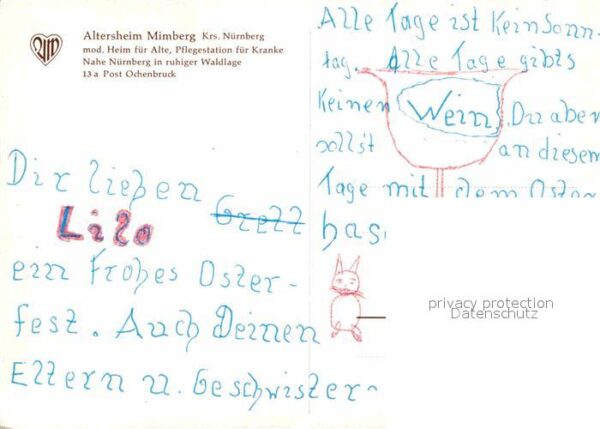 Altersheim Mimberg Krs. Nürnberg
mod. Heim für Alte, Pflegestation für Kranke
Nahe Nürnberg in ruhiger Waldlage
13a Post Ochenbruck
Dir lieben
Lilo
ein Frohes Oster-
fest. Auch Deinen
Eltern u. Geschwister-
Alle Tage ist Kein Sonn-
tag. Alle Tage gibts
Keinen Wein. Du aber
sollst an diesem
Tage mit dem Oster
has
privacy protection
Datenschutz